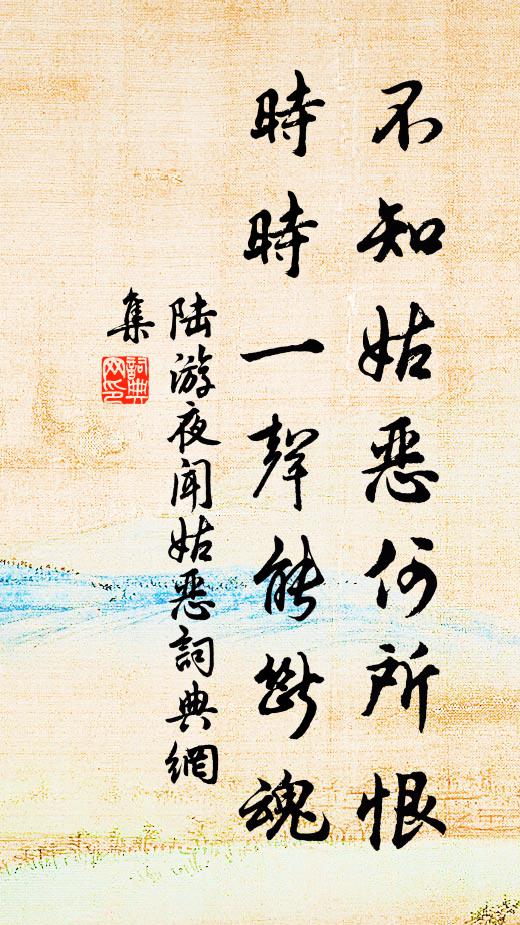 不知姑恶何所恨
時時一聲能斷魂
陆游夜闻姑恶詞典網
集
詞典
网印